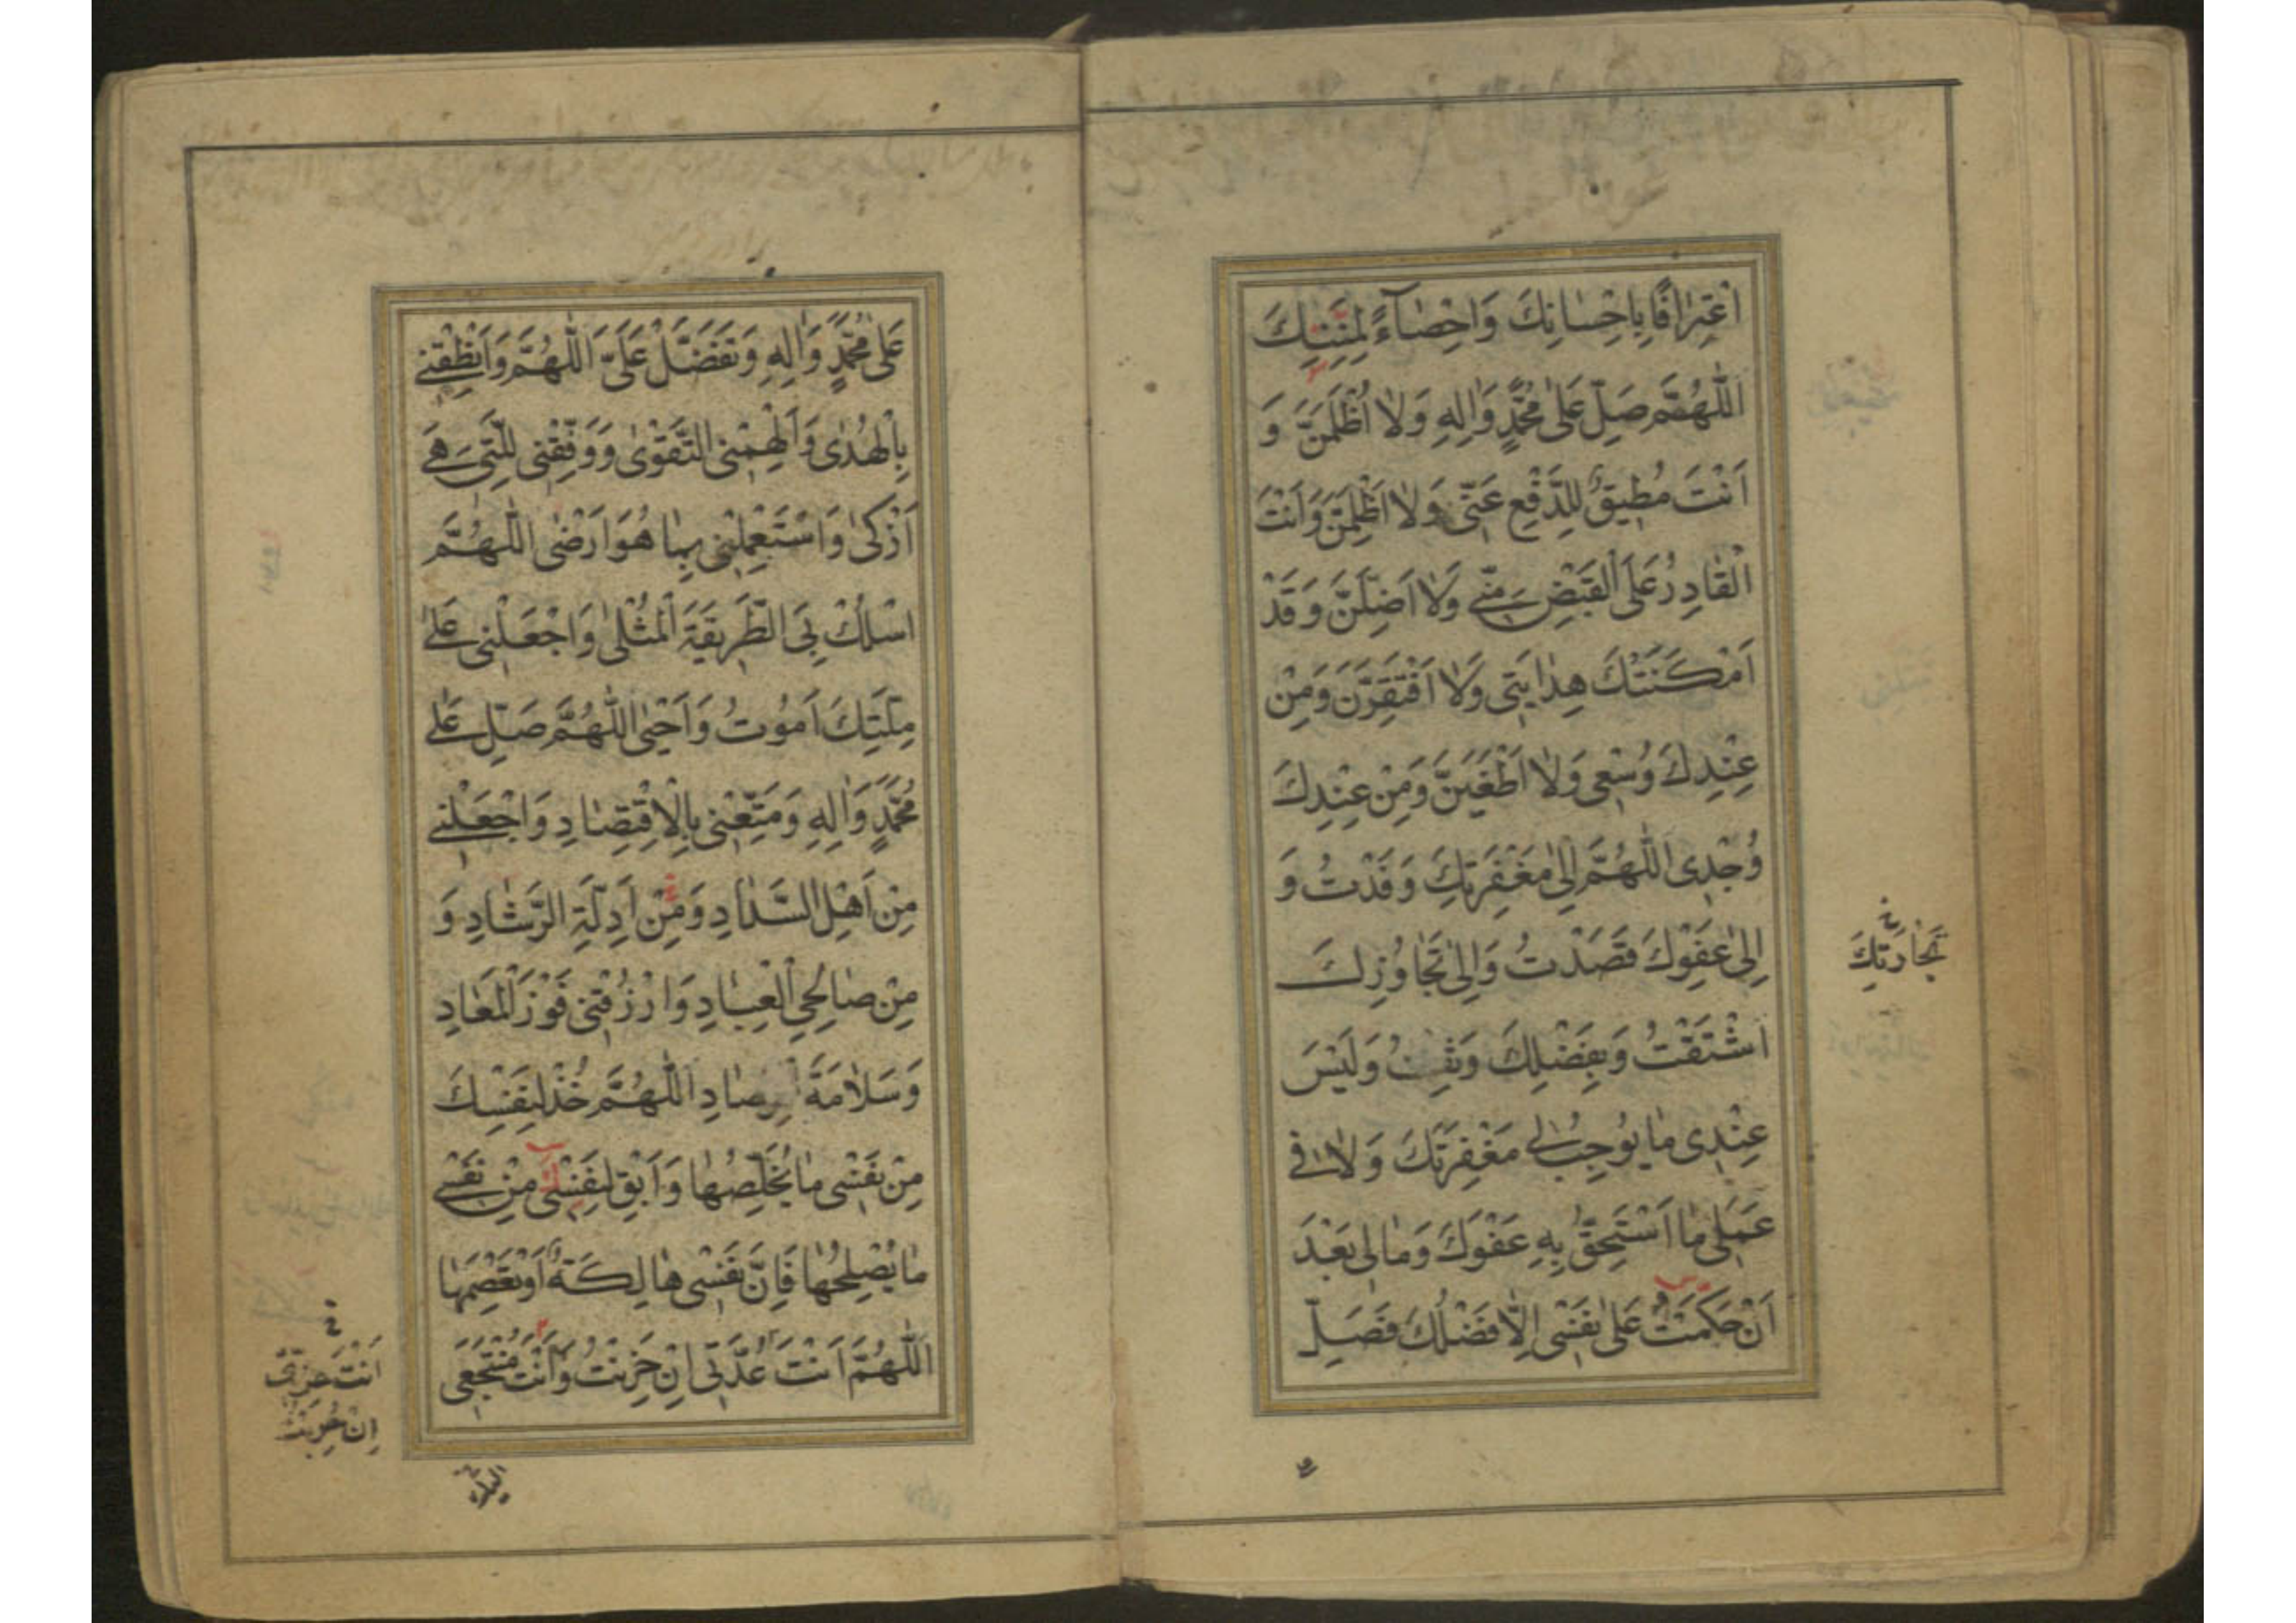 اعْتِرَافًا بِاِحْسَانِكَ وَاِحْصَآءً لِمِنَنِكَ
اَللّٰهُمَّ صَلِّ عَلٰى مُحَمَّدٍ وَاٰلِهِ وَلَا اُظْلَمَنَّ وَ
اَنْتَ مُطِيقٌ لِلدَّفْعِ عَنّى وَلَا اَظْلِمَنَّ وَاَنْتَ
الْقَادِرُ عَلَى الْقَبْضِ مِنّى وَلَا اَضِلَّنَّ وَقَدْ
اَمْكَنَتْكَ هِدَايَتى وَلَا اَفْتَقِرَنَّ وَمِنْ
عِنْدِكَ وُسْعى وَلَا اَطْغَيَنَّ وَمِنْ عِنْدِكَ
وُجْدِى اَللّٰهُمَّ اِلٰى مَغْفِرَتِكَ وَفَدْتُ وَ
اِلٰى عَفْوِكَ قَصَدْتُ وَاِلٰى تَجَاوُزِكَ
تَجَارَتِكَ
اشْتَقْتُ وَبِفَضْلِكَ وَثِقْتُ وَلَيْسَ
عِنْدِى مَا يُوجِبُ لى مَغْفِرَتَكَ وَلَا فى
عَمَلى مَا اَسْتَحِقُّ بِهِ عَفْوَكَ وَمَا لى بَعْدَ
اَنْ حَكَمْتُ عَلٰى نَفْسى اِلَّا فَضْلُكَ فَصَلِّ
عَلٰى مُحَمَّدٍ وَاٰلِهِ وَتَفَضَّلْ عَلَىَّ اَللّٰهُمَّ وَاَنْطِقْنى
بِالْهُدٰى وَاَلْهِمْنى التَّقْوٰى وَوَفِّقْنى لِلَّتى هِىَ
اَزْكٰى وَاسْتَعْمِلْنى بِمَا هُوَ اَرْضٰى اَللّٰهُمَّ
اسْلُكْ بِىَ الطَّرِيقَةَ الْمُثْلٰى وَاجْعَلْنى عَلٰى
مِلَّتِكَ اَمُوتُ وَاَحْيٰى اَللّٰهُمَّ صَلِّ عَلٰى
مُحَمَّدٍ وَاٰلِهِ وَمَتِّعْنى بِالْاِقْتِصَادِ وَاجْعَلْنى
مِنْ اَهْلِ السَّدَادِ وَمِنْ اَدِلَّةِ الرَّشَادِ وَ
مِنْ صَالِحِى الْعِبَادِ وَارْزُقْنى فَوْزَ الْمَعَادِ
وَسَلَامَةَ الْمِرْصَادِ اَللّٰهُمَّ خُذْ لِنَفْسِكَ
مِنْ نَفْسى مَا يُخَلِّصُهَا وَاَبْقِ لِنَفْسى مِنْ نَفْسى
مَا يُصْلِحُهَا فَاِنَّ نَفْسى هَالِكَةٌ اَوْ تَعْصِمَهَا
اَللّٰهُمَّ اَنْتَ عُدَّتى اِنْ حَزِنْتُ وَاَنْتَ مُنْتَجَعى